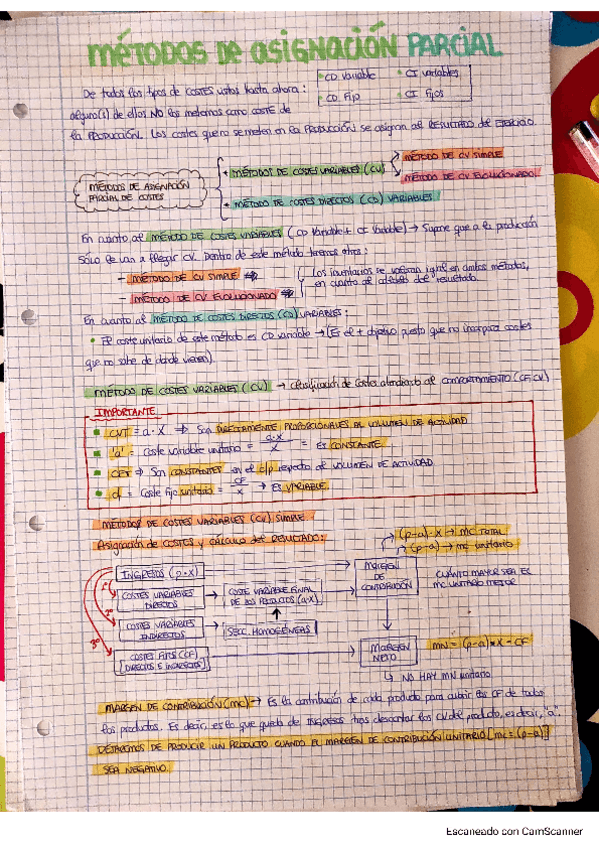 MÉTODOS DE ASIGNACIÓN PARCIAL
De todos los tipos de COSTES vistos hasta ahora:
• CD Variable • CI Variables
• CD Fijo • CI Fijos
alguno(s) de ellos NO los metemos como COSTE de
la PRODUCCIÓN. Los costes que no se meten en la PRODUCCIÓN se asignan al RESULTADO del EJERCICIO.
MÉTODOS DE ASIGNACIÓN
PARCIAL DE COSTES
• MÉTODOS DE COSTES VARIABLES (CV)
MÉTODO DE CV SIMPLE
MÉTODO DE CV EVOLUCIONADO
• MÉTODO DE COSTES DIRECTOS (CD) VARIABLES
En cuanto al MÉTODO DE COSTES VARIABLES (CD Variable + CI Variable) → Supone que a la producción
Sólo le van a llegar CV. Dentro de este método tenemos otros:
- MÉTODO DE CV SIMPLE ⇒
- MÉTODO DE CV EVOLUCIONADO ⇒
Los inventarios se valoran igual en ambos métodos,
en cuanto al cálculo del resultado.
En cuanto al MÉTODO DE COSTES DIRECTOS (CD) VARIABLES:
• El coste unitario de este método es CD variable → (Es el + objetivo puesto que no incorpora costes
que no sabe de dónde vienen).
MÉTODO DE COSTES VARIABLES (CV) → Clasificación de Costes atendiendo al COMPORTAMIENTO (CF, CV)
IMPORTANTE
CVT = a·X ⇒ Son DIRECTAMENTE PROPORCIONALES AL VOLUMEN DE ACTIVIDAD
"a" = Coste variable unitario = a·X / X = Es CONSTANTE
CFT ⇒ Son CONSTANTES en el c/p respecto al VOLUMEN DE ACTIVIDAD
cf = Coste fijo unitario = CF / X → Es VARIABLE.
MÉTODOS DE COSTES VARIABLES (CV) SIMPLE
Asignación de COSTES y cálculo del RESULTADO:
(p-a)·X → mc TOTAL
(p-a) → mc unitario
INGRESOS (p·X)
MARGEN
DE
CONTRIBUCIÓN
CUANTO MAYOR SEA EL
MC UNITARIO MEJOR
1º
COSTES VARIABLES
DIRECTOS
COSTE VARIABLE FINAL
DE LOS PRODUCTOS (a·X)
2º
COSTES VARIABLES
INDIRECTOS
SECC. HOMOGÉNEAS
3º
COSTES FIJOS (CF)
[DIRECTOS E INDIRECTOS]
MARGEN
NETO
MN = (p-a)·X - CF
NO HAY MN unitario
MARGEN DE CONTRIBUCIÓN (mc) → Es la contribución de cada producto para cubrir los CF de todos
los productos. Es decir, es lo que queda de INGRESOS tras descontar los CV del producto, es decir, "a".
DEJAREMOS DE PRODUCIR UN PRODUCTO CUANDO EL MARGEN DE CONTRIBUCIÓN UNITARIO [mc = (p-a)]
SEA NEGATIVO.
Escaneado con CamScanner